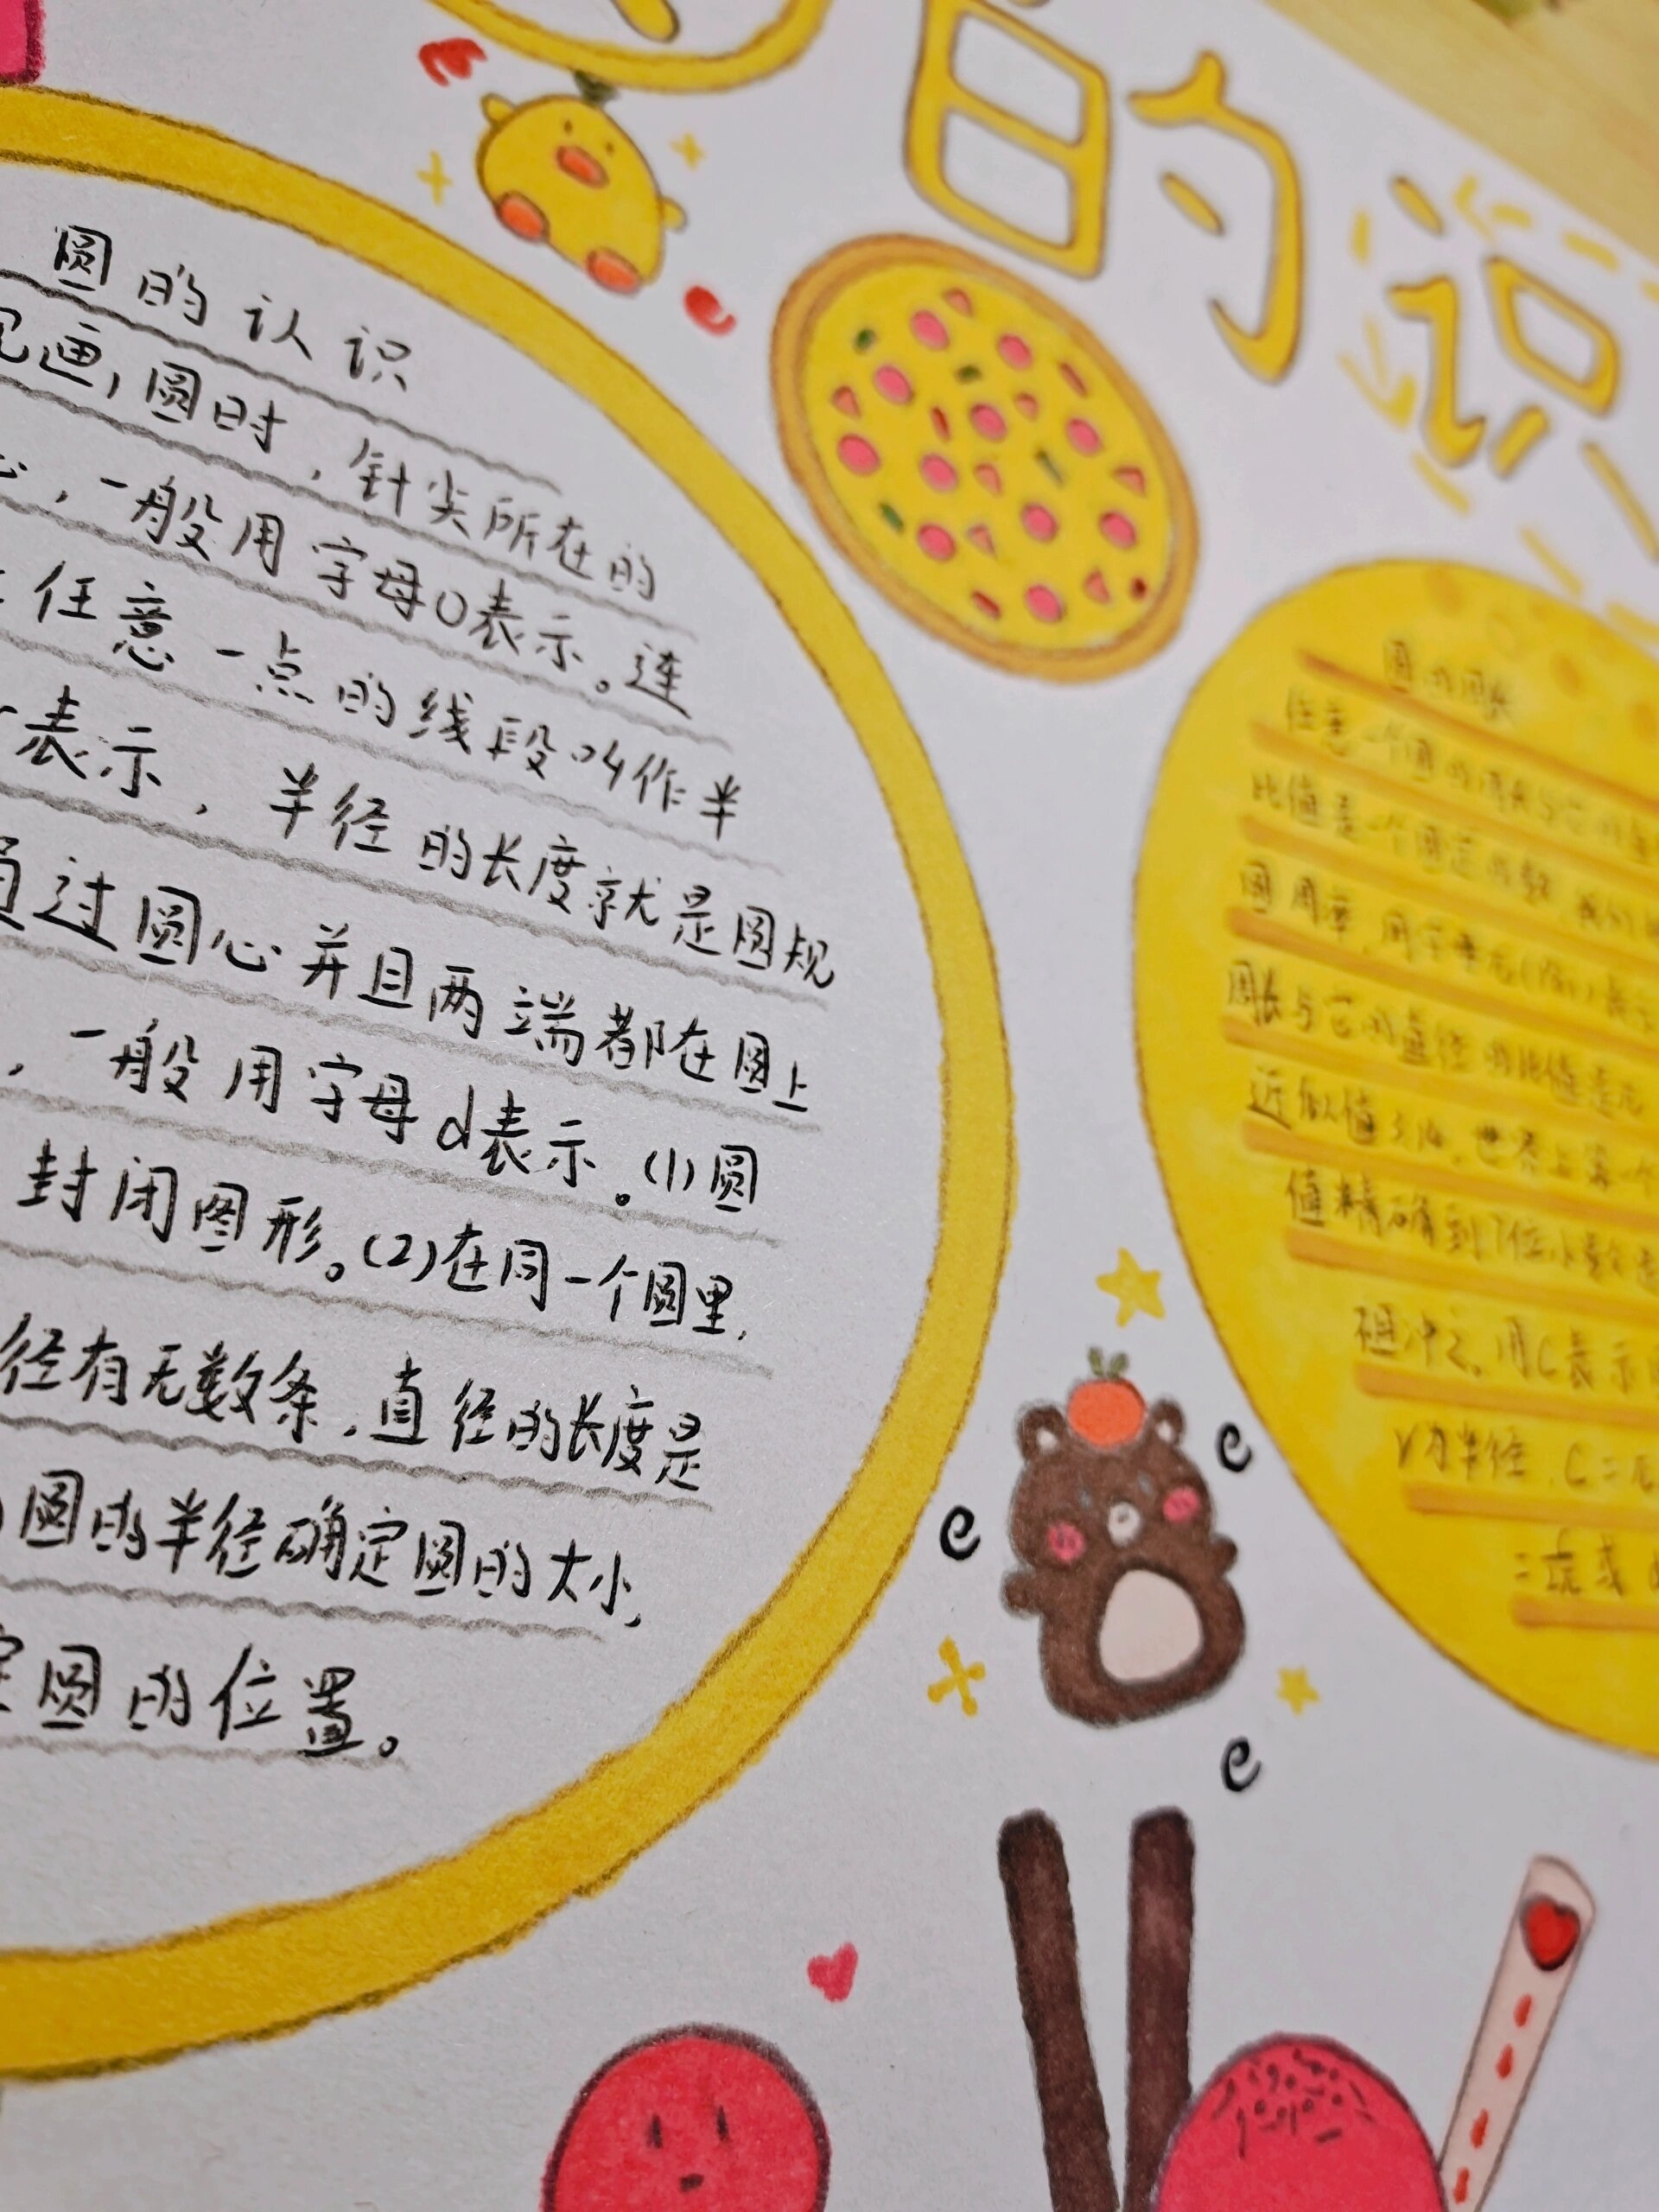 的识
圆的认识
画,圆时，针尖所在的
，一般用字母O表示。连
任意一点的线段叫作半
表示，半径的长度就是圆规
过圆心并且两端都在圆上
，一般用字母d表示。(1)圆
封闭图形。(2)在同一个圆里，
径有无数条，直径的长度是
圆的半径确定圆的大小，
圆的位置。
圆的周长
任意一个圆的周长与它的
比值是一个固定的数 我们
圆周率，用字母π(pài)表示
周长与它的直径的比值是π
近似值3.14，世界上第一个
值精确到7位小数
祖冲之，用C表示
r为半径，C=π